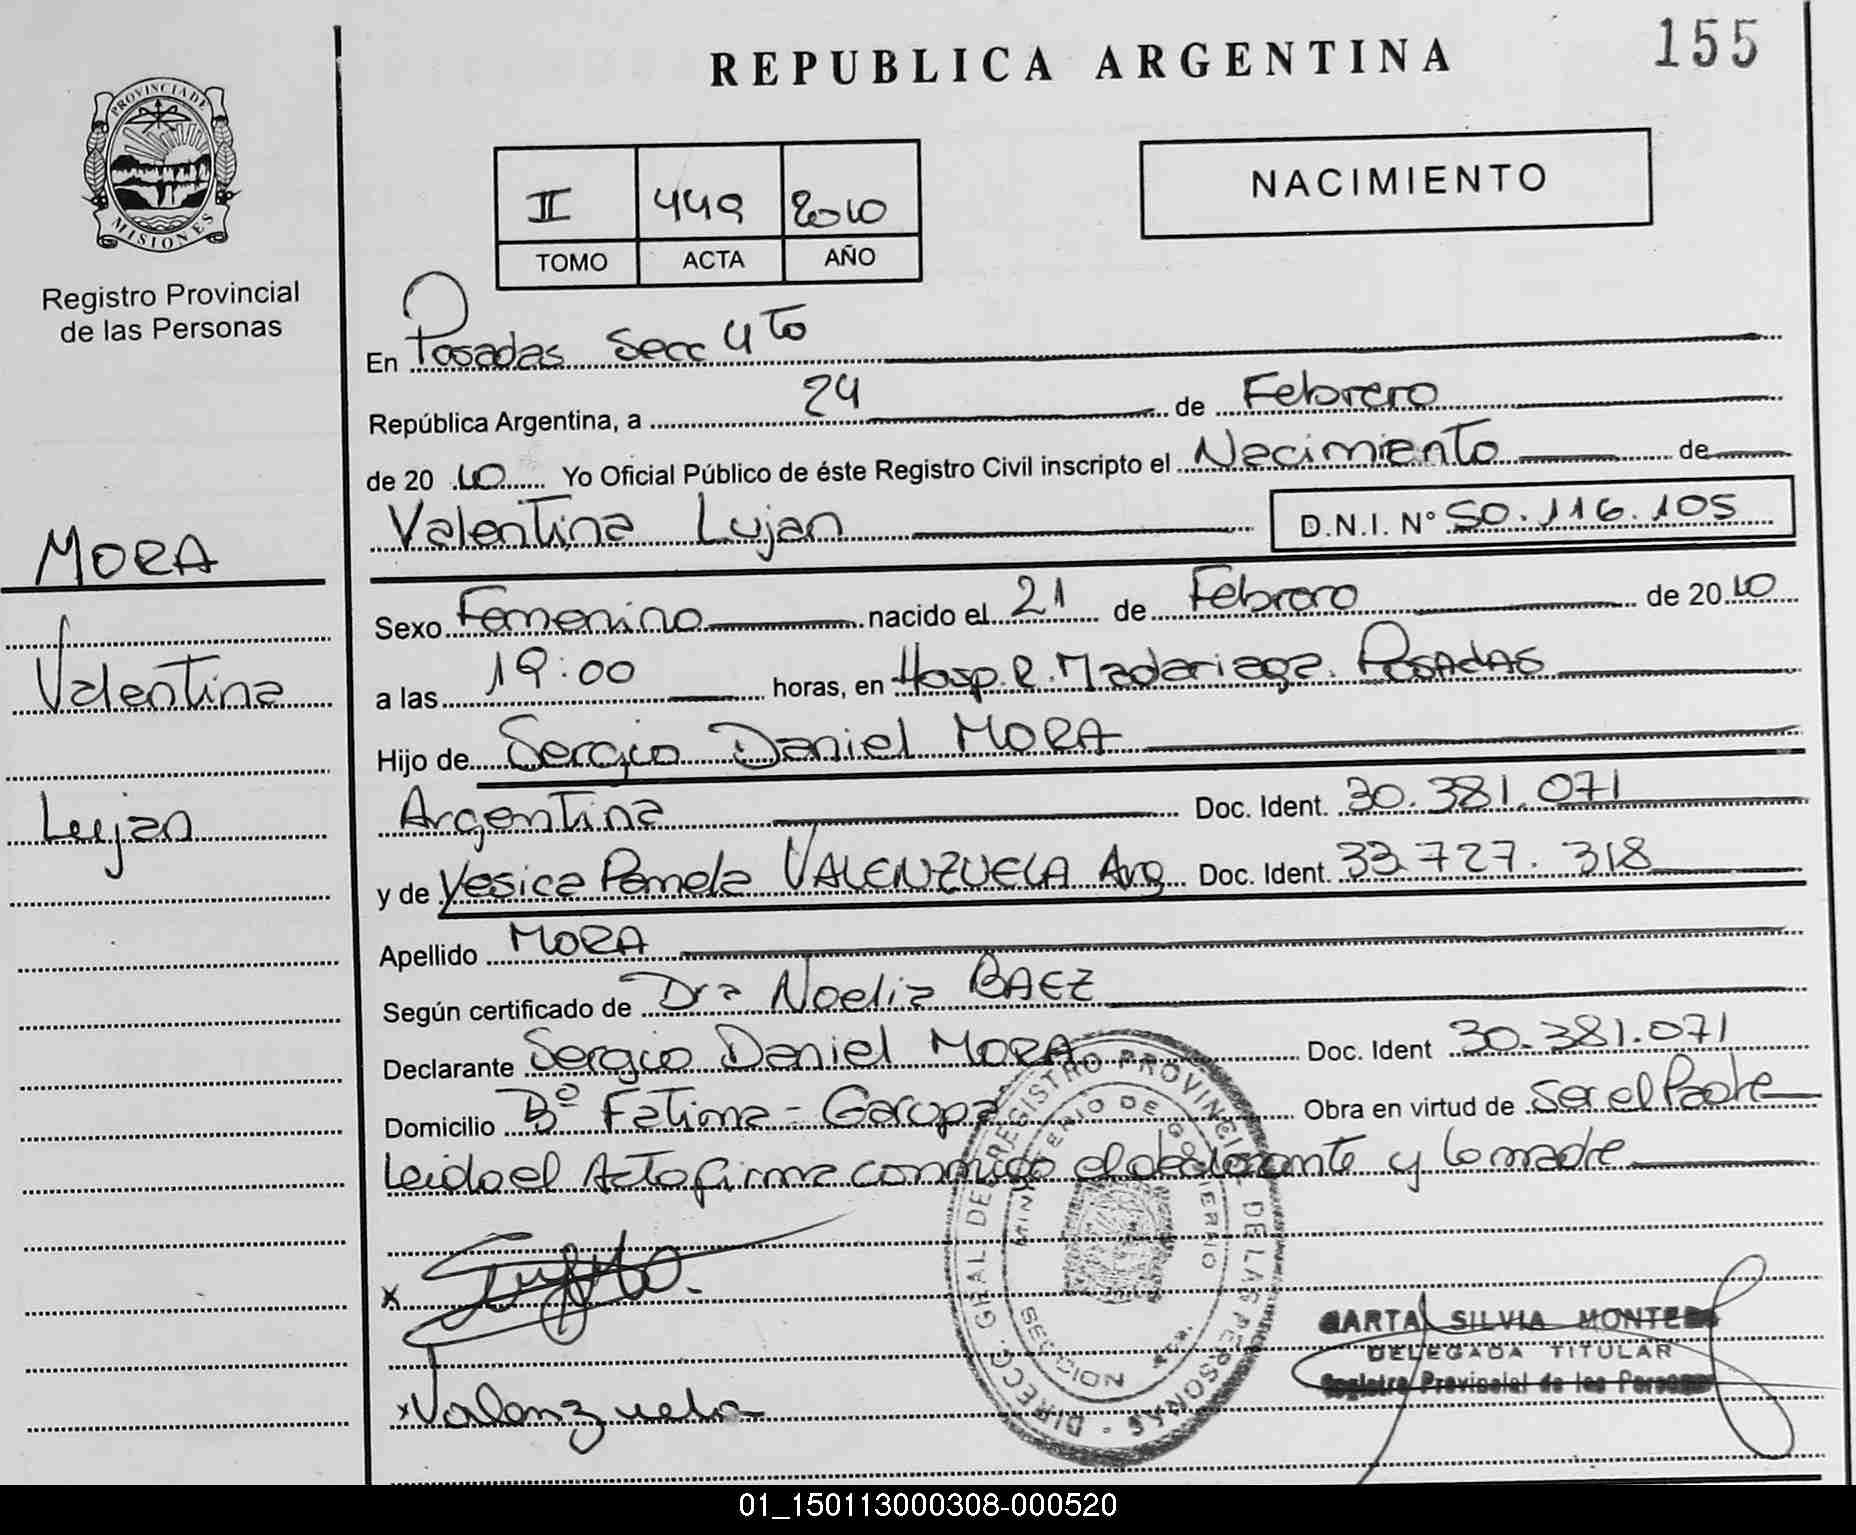 REPUBLICA ARGENTINA
155
PROVINCIA DE
MISIONES
Registro Provincial
de las Personas
II 449 2010
TOMO ACTA AÑO
NACIMIENTO
En Posadas Secc 4to
República Argentina, a 24 de Febrero
de 2010 Yo Oficial Público de éste Registro Civil inscripto el Nacimiento de
Valentina Lujan D.N.I. N° 50.116.105
MORA
Valentina
Lujan
Sexo Femenino nacido el 21 de Febrero de 2010
a las 19:00 horas, en Hosp. R. Madariaga. Posadas
Hijo de Sergio Daniel MORA
Argentina Doc. Ident. 30.381.071
y de Yesica Pamela VALENZUELA Arg Doc. Ident. 33.727.318
Apellido MORA
Según certificado de Dra Noelia BAEZ
Declarante Sergio Daniel MORA Doc. Ident 30.381.071
Domicilio Bº Fatima - Garupa Obra en virtud de ser el Padre
Leido el Acto firma conmigo el declarante y la madre
DIRECC. GRAL DE REGISTRO PROVINCIAL DE LAS PERSONAS
MINISTERIO DE GOBIERNO
MISIONES
x
x Valenzuela
SILVIA MONTE
DELEGADA TITULAR
Registro Provincial de las Personas
01_150113000308-000520